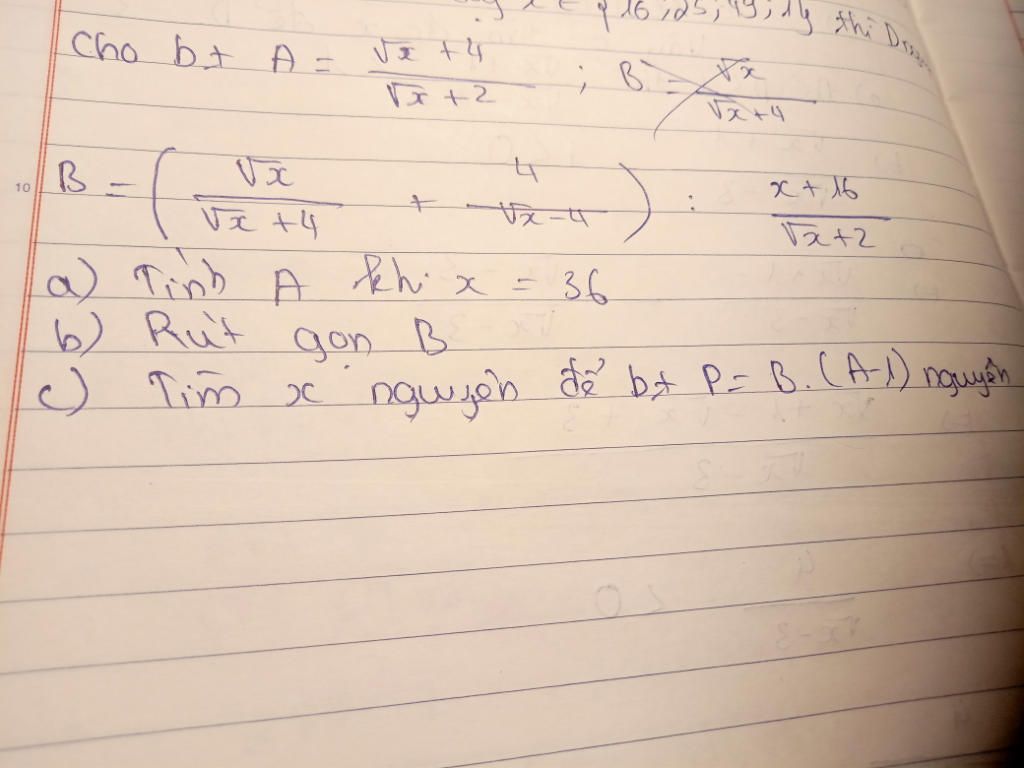 x ∈ { 16 ; 25 ; 49 ; 14 thì
Cho bt A = (√x + 4)/(√x + 2) ; B = √x/(√x + 4)
10 B = ( √x/(√x + 4) + 4/(√x - 4) ) : (x + 16)/(√x + 2)
a) Tính A khi x = 36
b) Rút gọn B
c) Tìm x nguyên để bt P = B . (A-1) nguyên